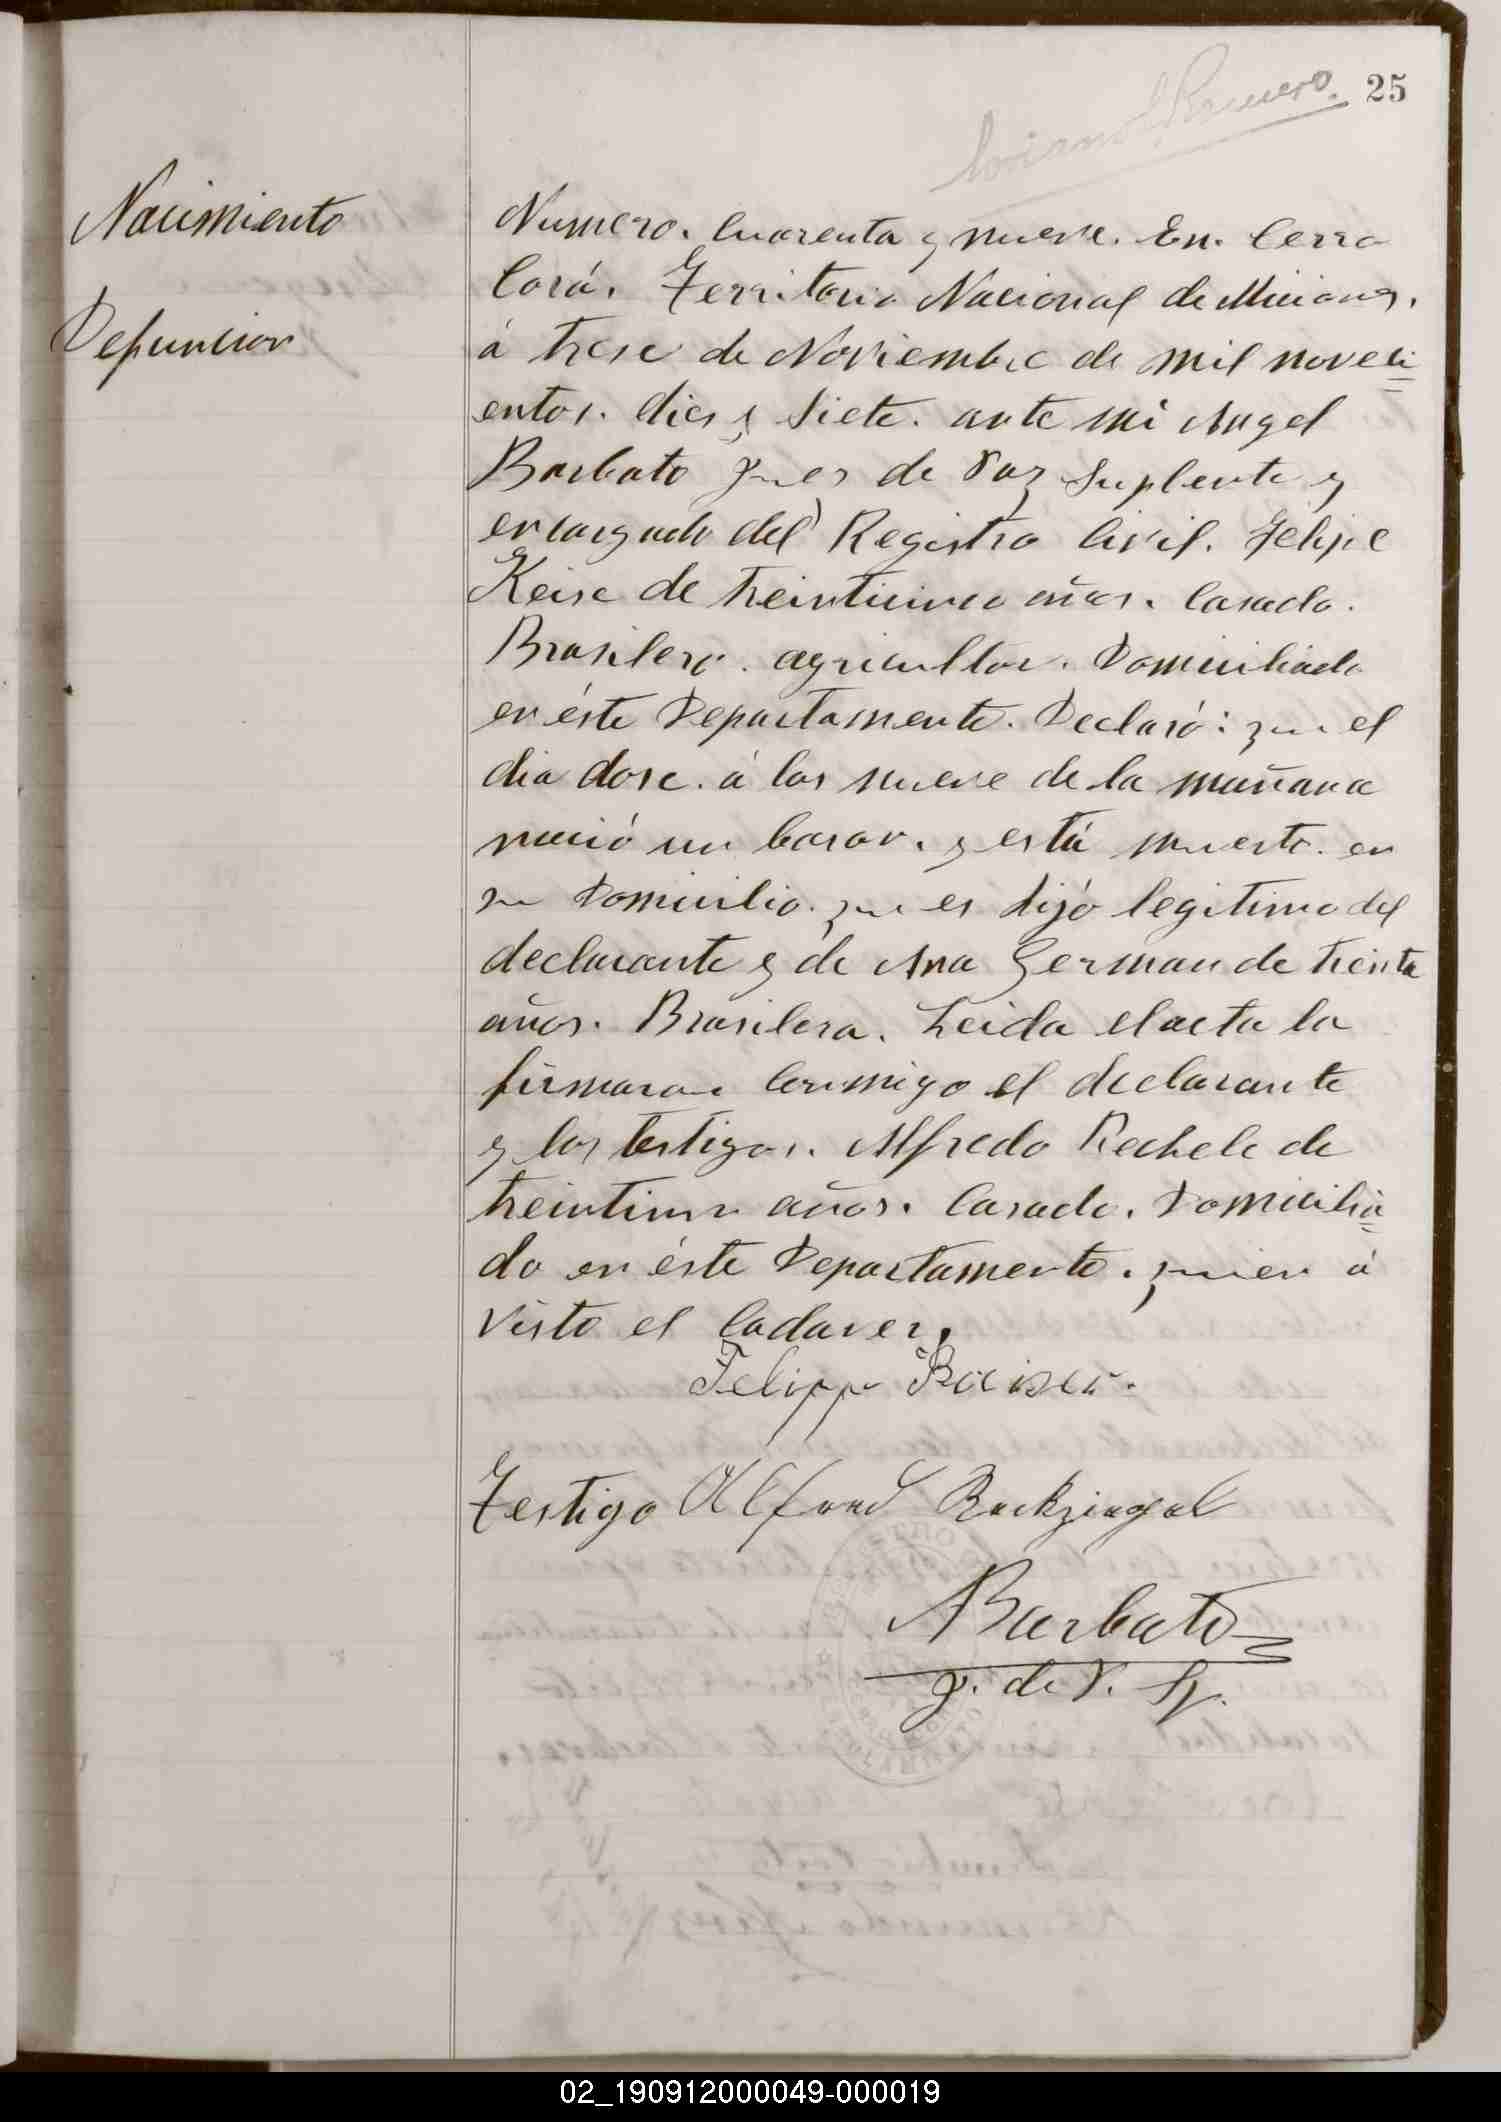 25
Nacimiento
Defuncion
Numero. Cuarenta y nueve. En. Cerro
Corá. Territorio Nacional de Misiones.
á trese de Noviembre de mil noveci=
entos. dies y siete. ante mi Angel
Barbato Jues de Paz Suplente y
encargado del Registro Civil. Felipe
Keise de treinticinco años. Casado.
Brasilero. agricultor. Domiciliado
en éste Departamento. Declaró: que el
dia dose. á las nueve de la mañana
nació un baron. y está muerto. en
su Domicilio. que es hijo legitimo del
declarante y de Ana German de treinta
años. Brasilera. Leida el acta la
firmaron Conmigo el declarante
y los testigos. Alfredo Rechele de
treintiun años. Casado. Domicilia=
do en éste Departamento. quien á
visto el Cadaver.
Felipp
Testigo Alfred
ABarbato
J. de P. Sp.
02_190912000049-000019